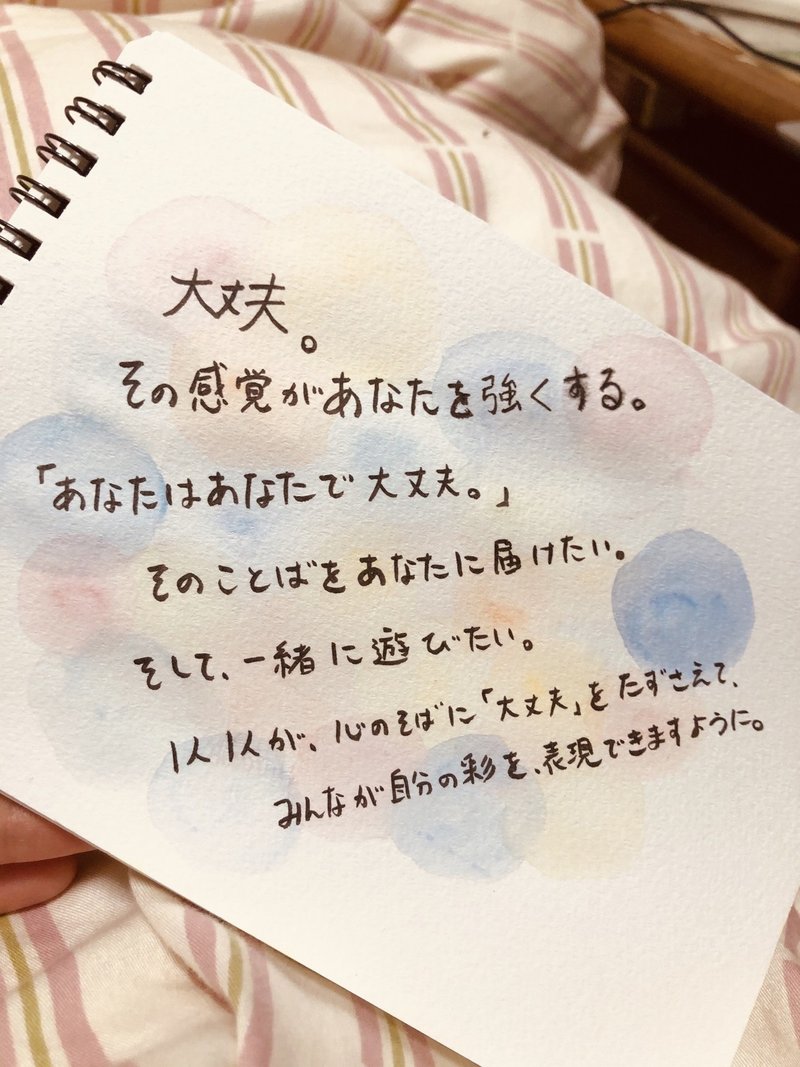 大丈夫。
その感覚があなたを強くする。
「あなたはあなたで大丈夫。」
そのことばをあなたに届けたい。
そして、一緒に遊びたい。
1人1人が、心のそばに「大丈夫」をたずさえて、
みんなが自分の彩を、表現できますように。